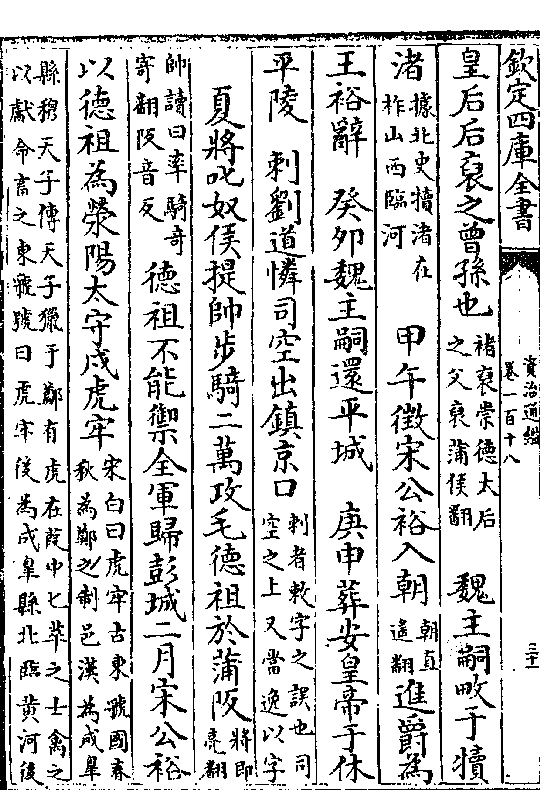 欽定四庫全書
資治通鑑
卷一百十八
三十
皇后后裒之曾孫也褚裒崇德太后之父裒蒲侯翻 魏主嗣畋于犢
渚據北史犢渚在柞山西臨河 甲午徵宋公裕入朝朝直遙翻進爵為
王裕辭 癸卯魏主嗣還平城 庚申葬安皇帝于休
平陵 刺劉道憐司空出鎮京口刺者敕字之誤也司空之上又當逸以字
夏將叱奴侯提帥步騎二萬攻毛德祖於蒲阪將即亮翻
帥讀曰率騎奇寄翻阪音反 德祖不能禦全軍歸彭城二月宋公裕
以德祖為滎陽太守戍虎牢宋白曰虎牢古東虢國春秋為鄭之制邑漢為成臯
縣穆天子傳天子獵于鄭有虎在葭中七萃之士禽之以獻命畜之東虢號曰虎牢後為成臯縣北臨黃河後